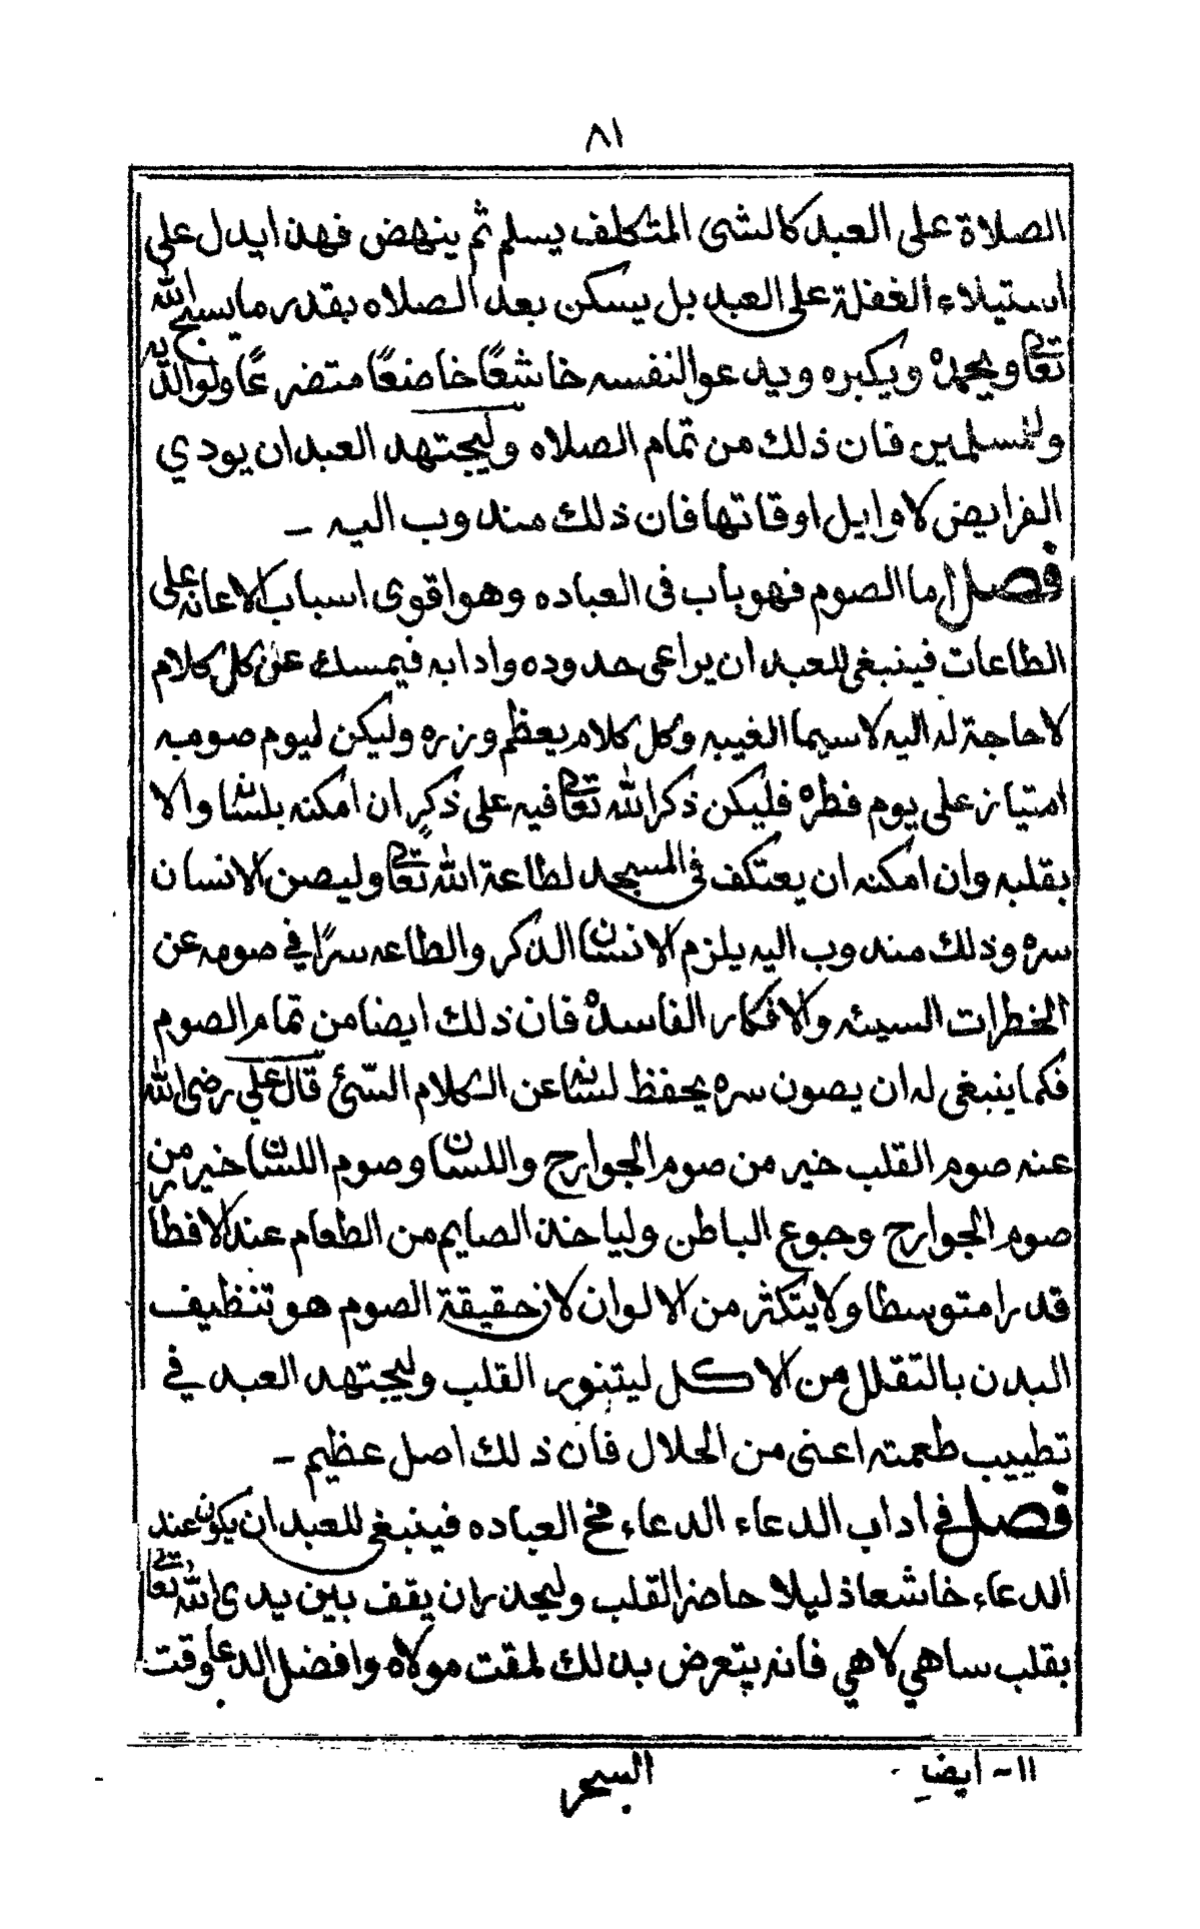 ٨١
الصلاة على العبد كالشى المتكلف يسلم ثم ينهض فهذا يدل على
استيلاء الغفلة على العبد بل يسكن بعد الصلاه بقدر ما يسبح الله
تعالى ويحمده ويكبره ويدعو النفسه خاشعًا خاضعًا متضرعًا ولوالديه
وللمسلمين فان ذلك من تمام الصلاه وليجتهد العبد ان يودي
الفرايض لاوايل اوقاتها فان ذلك مندوب اليه -
فصل اما الصوم فهو باب فى العباده وهو اقوى اسباب الاعانه على
الطاعات فينبغى للعبد ان يراعى حدوده وادابه فيمسك عن كل كلام
لا حاجة له اليه لا سيما الغيبه وكل كلام يعظم وزره وليكن ليوم صومه
امتياز على يوم فطره فليكن ذكر الله تعالى فيه على ذكر ان امكنه بلسانه والا
بقلبه وان امكنه ان يعتكف فى المسجد لطاعة الله تعالى وليصن الانسان
سره وذلك مندوب اليه يلزم الانسان الذكر والطاعه سرًا في صومه عن
الخطرات السيئه والافكار الفاسدة فان ذلك ايضا من تمام الصوم
فكما ينبغى له ان يصون سره يحفظ لسانه عن الكلام السّئ قال علي رضى الله
عنه صوم القلب خير من صوم الجوارح واللسان وصوم اللسان خير من
صوم الجوارح وجوع الباطن ولياخذ الصايم من الطعام عند الافطا
قدرا متوسطا ولا يتكثر من الالوان لان حقيقة الصوم هو تنظيف
البدن بالتقلل من الاكل ليتنور القلب وليجتهد العبد في
تطييب طعمته اعنى من الحلال فان ذلك اصل عظيم -
فصل في اداب الدعاء الدعاء مخ العباده فينبغى للعبد ان يكون عند
الدعاء خاشعا ذليلا حاضر القلب وليحذر ان يقف بين يدى الله تعالى
بقلب ساهي لاهي فانه يتعرض بذلك لمقت مولاه وافضل الدعا وقت
١١- ايضا
السحر